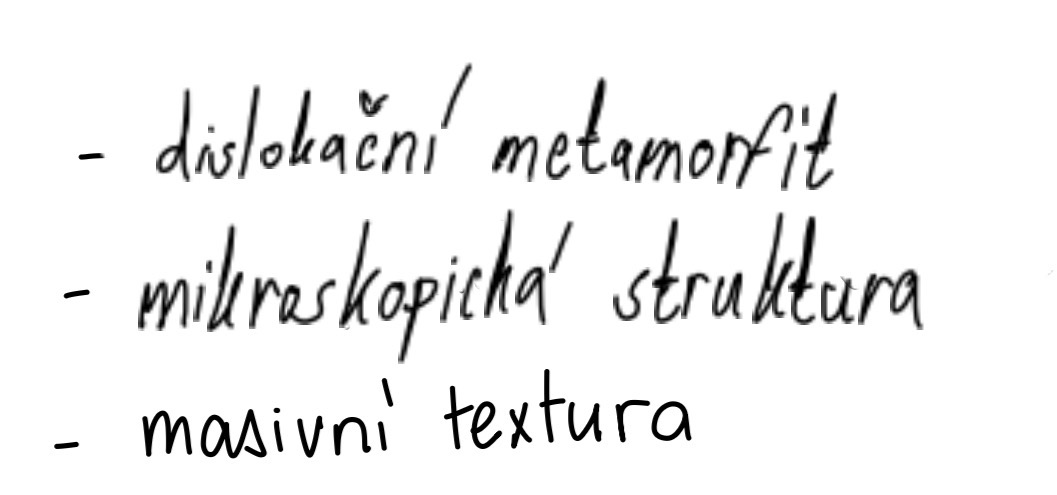 - dislokační metamorfit
- mikroskopická struktura
- masivní textura